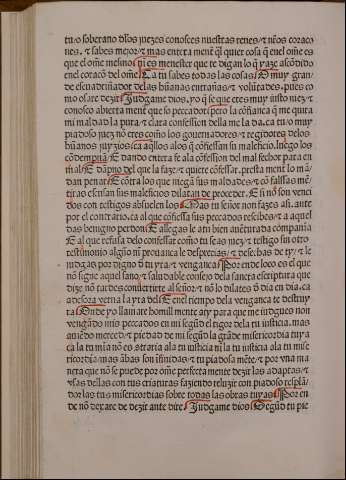 tu/o soberano dios juezes conosces nuestras renes/ τ nr̃os coraço
nes. τ sabes mejor/ τ mas entera menẽ ql̃quier cosa q̃ enel ome es
que el ome mesmo/ ni es menester que te digan lo q̃ yaze ascõdido
enel coracõ del ome/ Ca tu sabes todas las cosas/ O muy gran/
de escudriñador delas hũanas entrañas/ τ volũtades. pues co
mo osare dezir Judgame dios. yo q̃ se que eres muy iusto juez/ τ
conosco abierta mente que so peccador/ pero la cõfiança que me q̃ta
mi maldad la pura/ τ clara confession della me la da. ca tu/o muy
piadoso juez nõ eres como los gouernadores/ τ regidores delos
hũanos juyzios/ ca aq̃llos alos q̃ cõfiessan su maleficio. luego los
cõdempnã/ E dando entera fe ala cõfession del mal fechor para en
mal/ E dãpno del que la faze/ τ quiere cõfessar. presta mente lo mã/
dan penar/ E cõtra los que niegã sus maldades/ τ cõ falssas mẽ/
tiras cõfian sus maleficios dilatan de proceder. E si nõ son venci
dos con testigos absueluen los/ Mas tu señor non fazes asi. ante
por el contrario. ca al que cõfiessa sus peccados rescibes/ τ a aquel
das benigno perdon/ E allegas le a tu bien auẽturada compañia
E al que refusa delo confessar como tu seas juez/ τ testigo sin otro
testimonio algũo nĩ prouança le desprecias/ τ desechas de ty/ τ le
judgas por digno d̃ tu yra/ τ vengança/ Por ende loco es el que
nõ sigue aquel sano/ τ saludable consejo dela sancta escriptura que
dize nõ tardes conuertirte al señor/ τ nõ lo dilates d̃ dia en dia. ca
adesora verna la yra del/ E enel tiempo dela vengança te destruy
ra/ Onde yo llamare homill mente a ty para que me iudgues non
vengãdo mis peccados en mi segũd el rigor dela tu iusticia. mas
auiẽdo merced/ τ piedad de mi segũd la grãde misericordia tuya
ca la tu mĩa nõ es cõtraria ala tu iusticia nĩ la tu iusticia ala tu mise
ricordia/ mas ãbas son jũtadas/ τ tu piadosa mẽte/ τ por vna ma
nera que nõ se puede por ome perfecta mente dezir las adaptas/ τ
vsas dellas con tus criaturas faziendo reluzir con piadoso resplã/
dor las tus misericordias sobre todas las obras tuyas/ Por en
de nõ dexare de dezir ante dire. Judgame dios/ Segũd tu pie